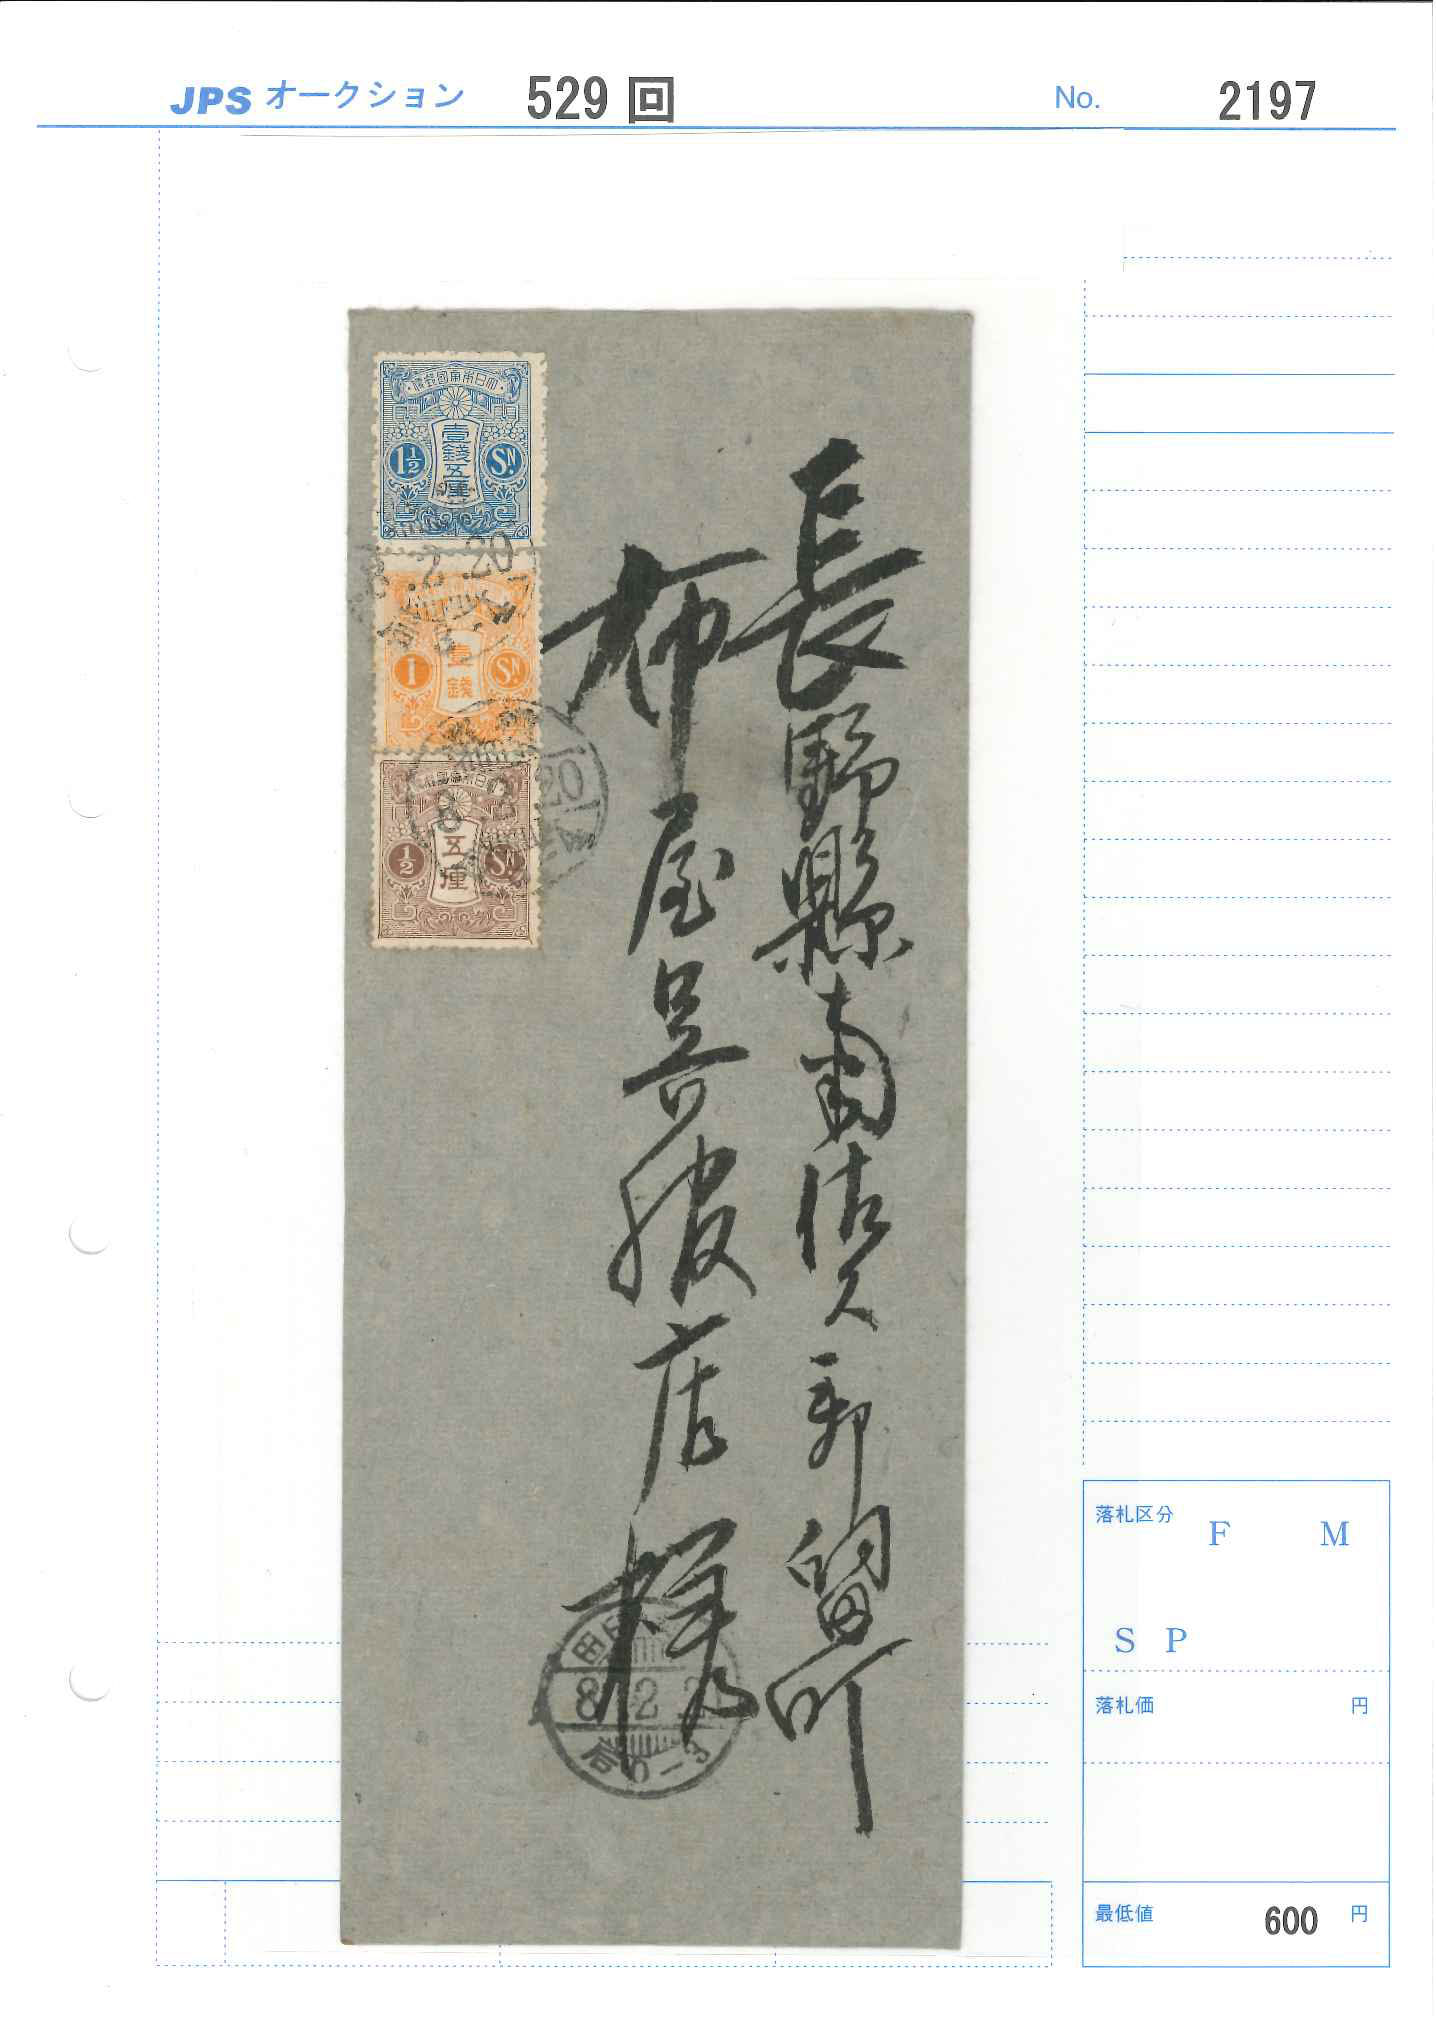 JPS オークション 529 回 No. 2197
大日本帝國郵便
壹錢五厘
1½ Sɴ.
8.2.20
壹錢
1 Sɴ.
大日本帝國郵便
8 2 20
五厘
½ Sɴ.
長野縣南佐久郡
布屋呉服店様
8 2
0-3
落札区分 F M
S P
落札価 円
最低値 600 円